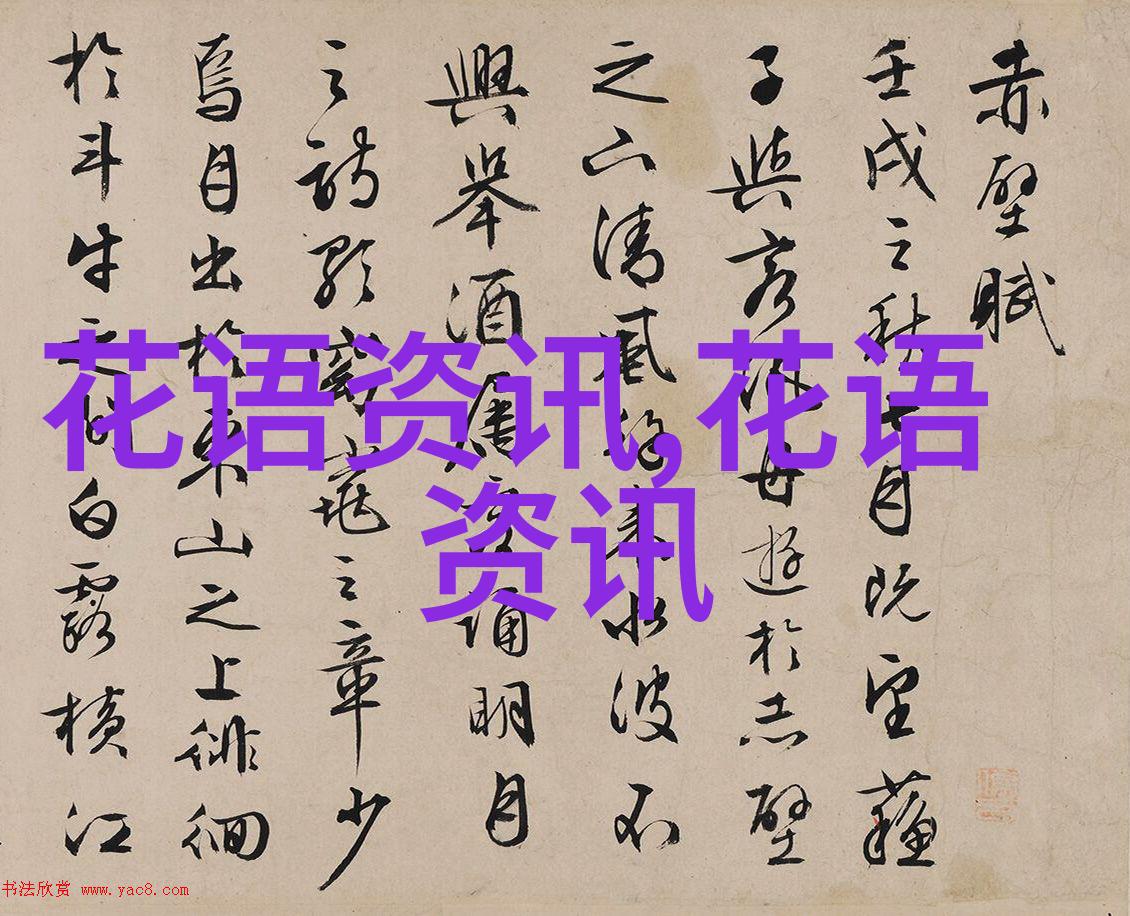 赤壁賦
壬戌之秋七月既望蘇
子與客泛舟遊於赤壁
之下清風徐來水波不
興舉酒屬客誦明月
之詩歌窈窕之章少
焉月出於東山之上徘徊
於斗牛之間白露橫江
花语资讯,花语
资讯
书法欣赏 www.yac8.com